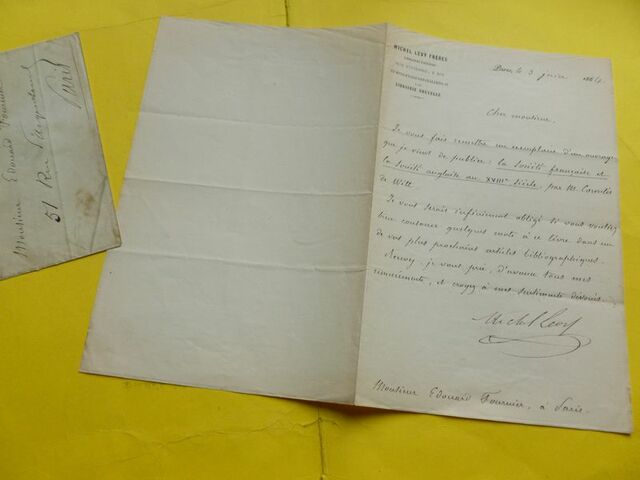 MICHEL LÉVY FRÈRES
LIBRAIRIE NOUVELLE
Paris, le 3 juin 1864.
Cher monsieur,
Je vous fais remettre un exemplaire d'un ouvrage
que je viens de publier: la Société française et
la Société anglaise au XVIIIe Siècle, par M. Cornelis
de Witt.
Je vous serais infiniment obligé si vous vouliez
bien consacrer quelques mots à ce livre dans un
de vos plus prochains articles bibliographiques.
je vous prie, d'avance tous mes
remerciements, et croyez à mes sentiments dévoués.
Michel Lévy
Monsieur Edouard Fournier, à Paris.
Monsieur Edouard Fournier
51 Rue
Paris